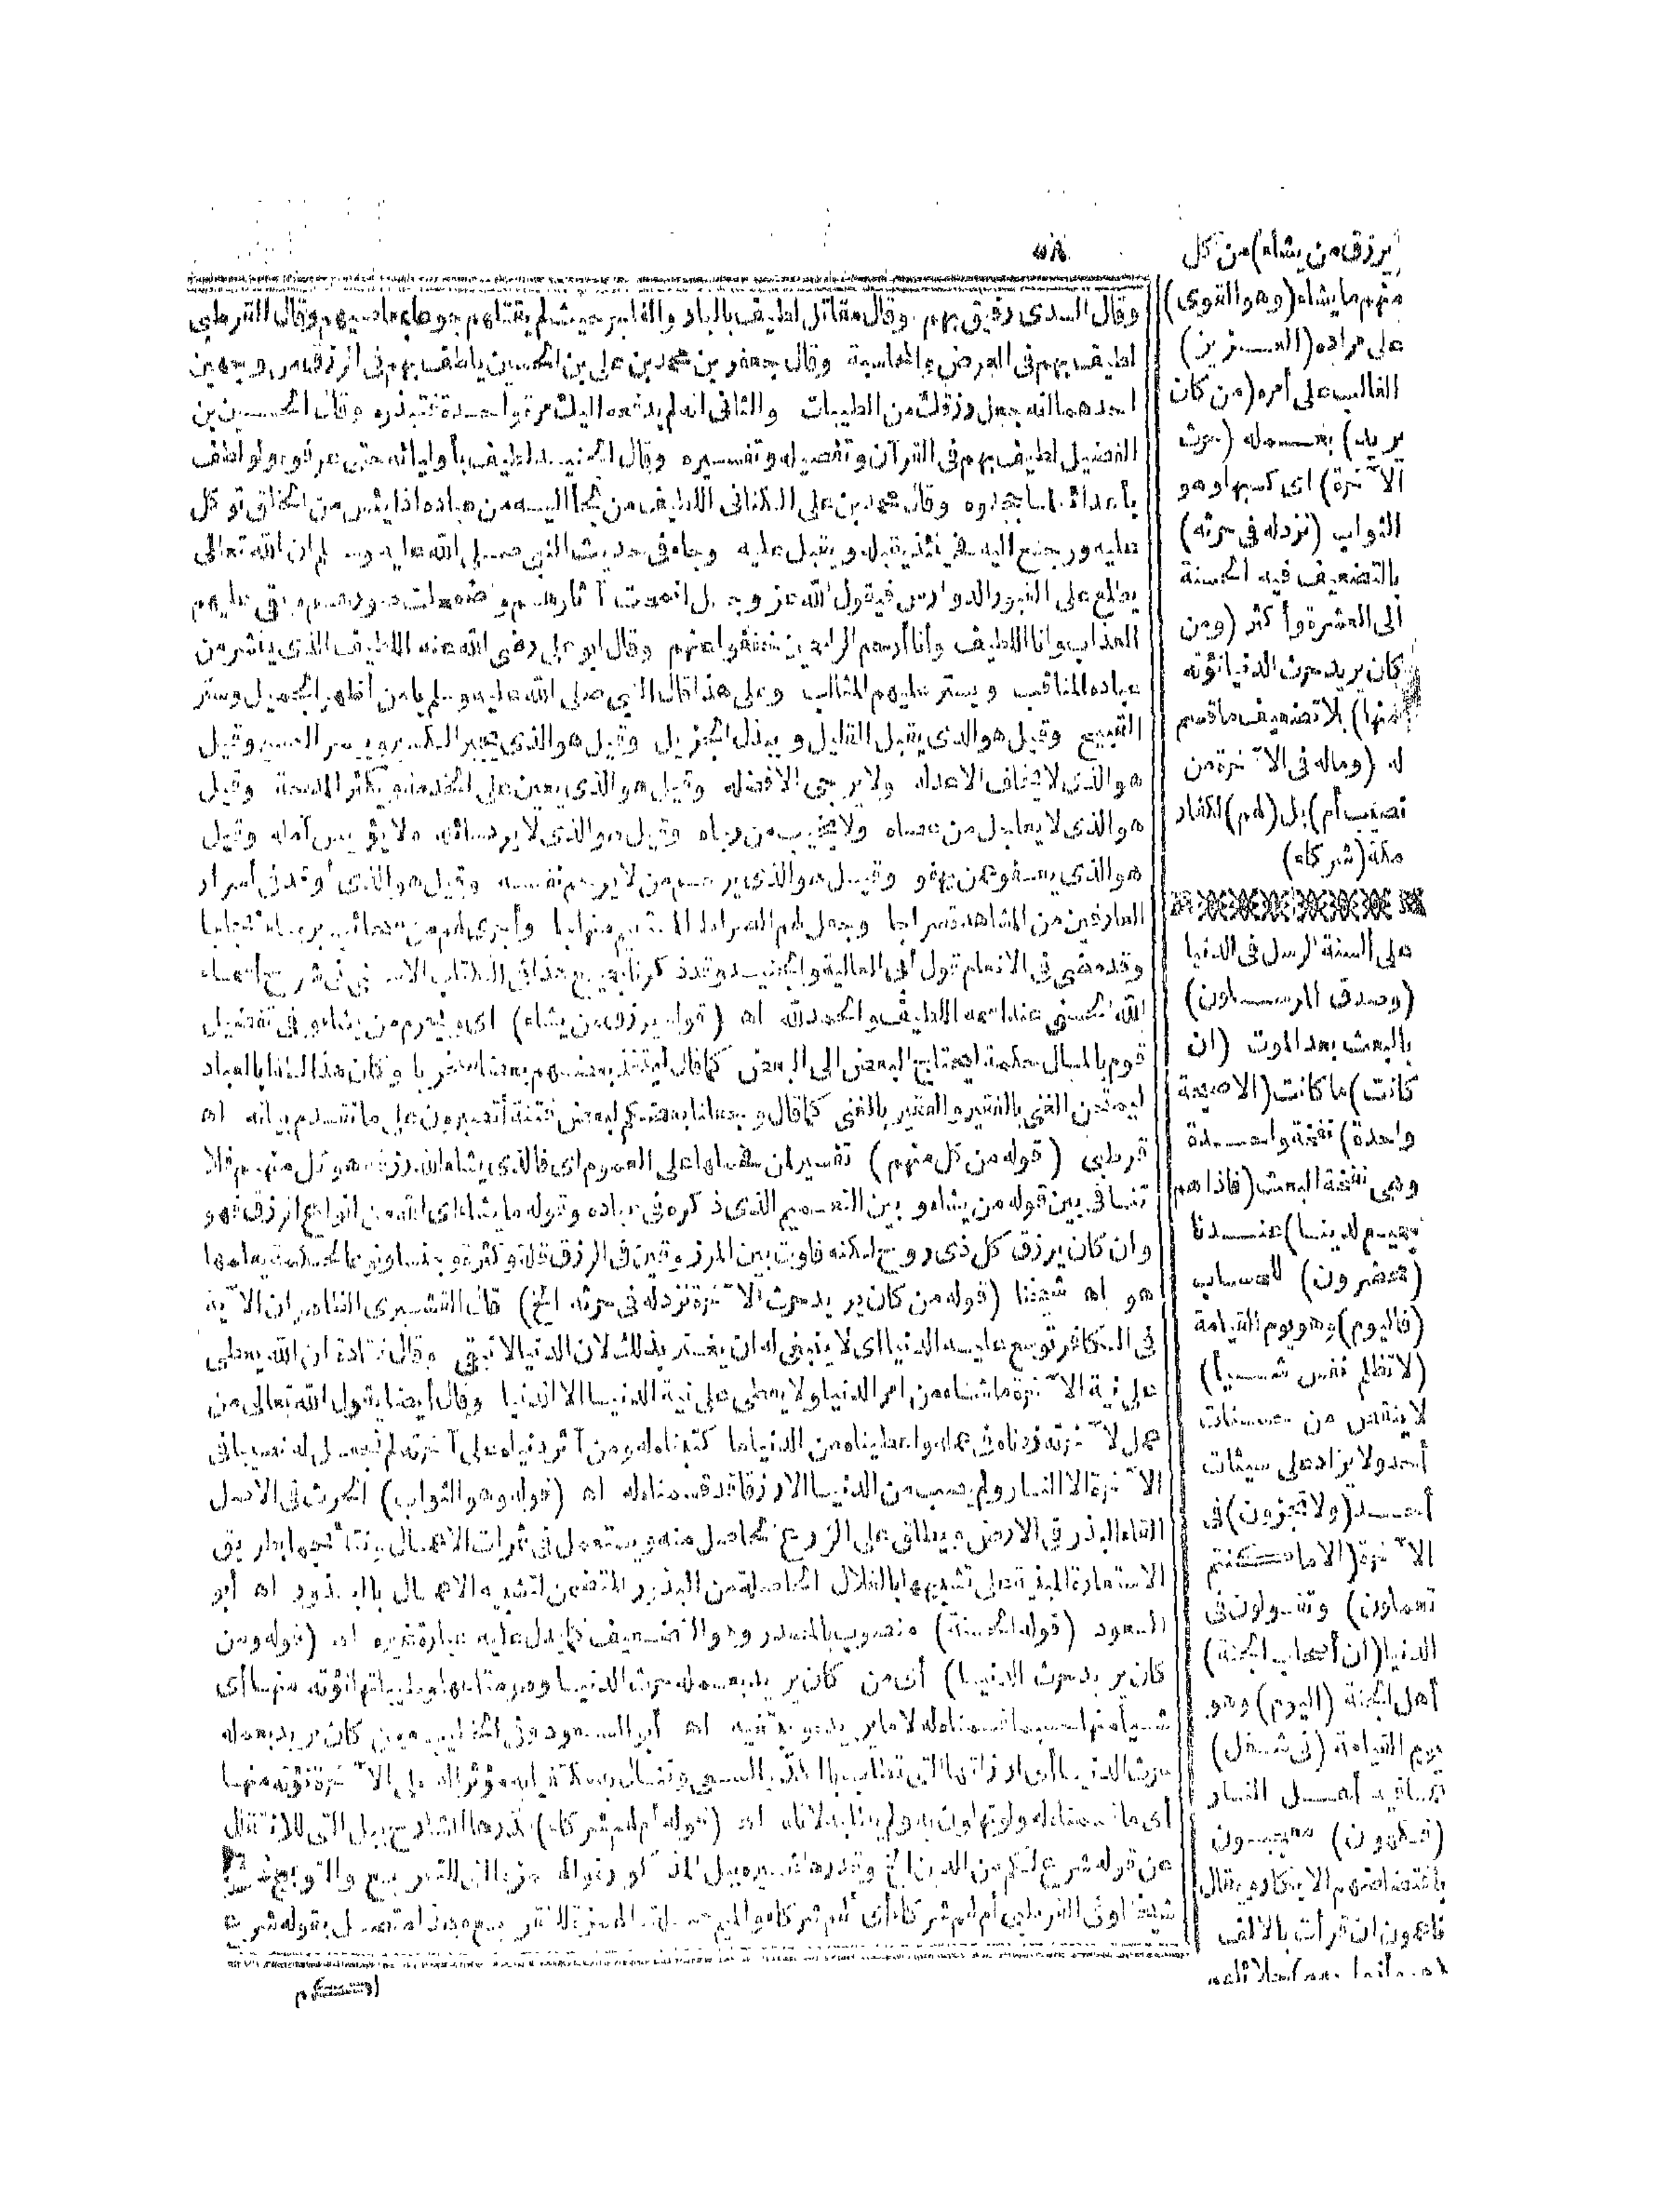 ٥٨
يرزق من يشاء) من كل
منهم ما يشاء (وهو القوى)
على مراده (العزيز)
الغالب على أمره (من كان
يريد) بعمله (حرث
الآخرة) اى كسبها وهو
الثواب (نزد له فى حرثه)
بالتضعيف فيه الحسنة
الى العشرة وأكثر (ومن
كان يريد حرث الدنيا نؤته
منها) بلا تضعيف ما قسم
له (وماله فى الآخرة من
نصيب أم) بل (لهم) لكفار
مكة (شركاء)
على ألسنة الرسل فى الدنيا
(وصدق المرسلون)
بالبعث بعد الموت (ان
كانت) ما كانت (الا صيحة
واحدة) نفخة واحدة
وهى نفخة البعث (فاذا هم
جميع لدينا) عندنا
(محضرون) للحساب
(فاليوم) وهو يوم القيامة
(لا تظلم نفس شيأ)
لا ينقص من حسنات
أحد ولا يزاد على سيئات
أحد (ولا تجزون) فى
الآخرة (الا ما كنتم
تعملون) وتقولون فى
الدنيا (ان أصحاب الجنة)
أهل الجنة (اليوم) وهو
يوم القيامة (فى شغل)
عما فيه أهل النار
(فكهون) معجبون
فاكهون ان قرأت بالالف
وقال السدى رفيق بهم وقال مقاتل لطيف بالبار والفاجر حيث لم يقتلهم جوعا بمعاصيهم وقال القرظى
لطيف بهم فى العرض والمحاسبة وقال جعفر بن محمد بن على بن الحسين يلطف بهم فى الرزق من وجهين
احدهما انه جعل رزقك من الطيبات والثانى انه لم يدفعه اليك مرة واحدة فتبذره وقال الحسين بن
الفضيل لطيف بهم فى القرآن وتفصيله وتفسيره وقال الجنيد لطيف بأوليائه حتى عرفوه ولو لطف
بأعدائه لما جحدوه وقال محمد بن على الكتانى اللطيف من لجأ اليه من عباده اذا يئس من الخلق توكل
عليه ورجع اليه فحينئذ يقبله ويقبل عليه وجاء فى حديث النبى صلى الله عليه وسلم ان الله تعالى
يطلع على القبور الدوارس فيقول الله عز وجل انمحت آثارهم واضمحلت صورهم وبقى عليهم
العذاب وانا اللطيف وأنا أرحم الراحمين خففوا عنهم وقال ابو على رضى الله عنه اللطيف الذى ينشر من
عباده المناقب ويستر عليهم المثالب وعلى هذا قال النبى صلى الله عليه وسلم يا من أظهر الجميل وستر
القبيح وقيل هو الذى يقبل القليل ويبذل الجزيل وقيل هو الذى يجبر الكسير وييسر العسير وقيل
هو الذى لا يخاف الا عدله ولا يرجى الا فضله وقيل هو الذى يعين على الخدمة ويكثر المدحة وقيل
هو الذى لا يعاجل من عصاه ولا يخيب من رجاه وقيل هو الذى لا يرد سائله ولا يؤيس آمله وقيل
هو الذى يعفو عمن يهفو وقيل هو الذى يرحم من لا يرحم نفسه وقيل هو الذى أوقد فى أسرار
العارفين من المشاهدة سراجا وجعل لهم الصراط المستقيم منهاجا وأجرى لهم من سحائب بره ماء ثجاجا
وقد مضى فى الانعام قول أبى العالية والجنيد وقد ذكرنا جميع هذا فى الكتاب الاسنى فى شرح اسماء
الله الحسنى عند اسمه اللطيف والحمد لله اه (قوله يرزق من يشاء) اى ويحرم من يشاء وفى تفضيل
قوم بالمال حكمة ليحتاج البعض الى البعض كما قال ليتخذ بعضهم بعضا سخريا وكان هذا لطفا بالعباد
ليمتحن الغنى بالفقير والفقير بالغنى كما قال وجعلنا بعضكم لبعض فتنة أتصبرون على ما تقدم بيانه اه
قرطبى (قوله من كل منهم) تفسير لمن بحملها على العموم اى فالذى يشاء الله رزقه هو كل منهم فلا
تنافى بين قوله من يشاء وبين التعميم الذى ذكره فى عباده وقوله ما يشاء اى الله من انواع الرزق فهو
وان كان يرزق كل ذى روح لكنه فاوت بين المرزوقين فى الرزق قلة وكثرة وجنسا ونوعا لحكمة يعلمها
هو اه شيخنا (قوله من كان يريد حرث الآخرة نزد له فى حرثه الخ) قال القشيرى الظاهر ان الآية
فى الكافر توسع عليه الدنيا اى لا ينبغى له ان يغتر بذلك لان الدنيا لا تبقى وقال قتادة ان الله يعطى
على نية الآخرة ما شاء من امر الدنيا ولا يعطى على نية الدنيا الا الدنيا وقال أيضا يقول الله تعالى من
عمل لآخرته زدناه فى عمله واعطيناه من الدنيا ما كتبنا له ومن آثر دنياه على آخرته لم نجعل له نصيبا فى
الآخرة الا النار ولم يصب من الدنيا الا رزقا قد قسمناه له اه (قوله وهو الثواب) الحرث فى الاصل
القاء البذر فى الارض ويطلق على الزرع الحاصل منه ويستعمل فى ثمرات الاعمال ونتائجها بطريق
الاستعارة المبنية على تشبيهها بالغلال الحاصلة من البذور المتضمن لتشبيه الاعمال بالبذور اه أبو
السعود (قوله الحسنة) منصوب بالمصدر وهو التضعيف كما يدل عليه عبارة غيره اه (قوله ومن
كان يريد حرث الدنيا) أى من كان يريد بعمله حرث الدنيا وهو متاعها وطيباتها نؤته منها أى
شيأ منها حسبما قسمناه له لا ما يريده ويبتغيه اه أبو السعود وفى الخطيب ومن كان يريد بعمله
حرث الدنيا أى ارزاقها التى تطلب بالكد والسعى وتنال به مكتفيا به مؤثرا له على الآخرة نؤته منها
أى ما قسمناه له ولو تهاون به ولم يطلبه لاتاه اه (قوله أم لهم شركاء) قدرها الشارح ببل التى للانتقال
عن قوله شرع لكم من الدين الخ وقدرها غيره ببل
شيخنا وفى القرطبى أم لهم شركاء أى ألهم شركاء والميم صلة والهمزة للتقريع وهذا متصل بقوله شرع